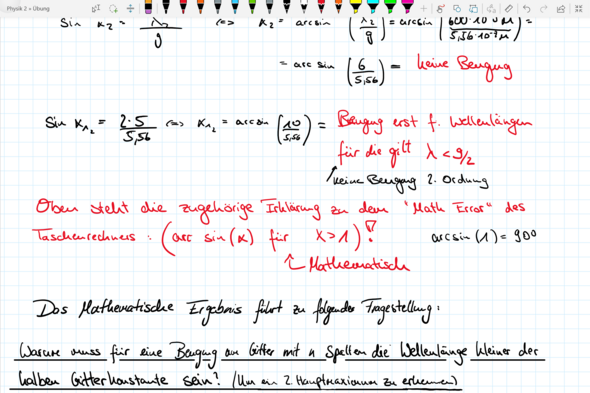 Physik 2 + Übung
sin α₂ = λ₂/g <=> α₂ = arcsin (λ₂/g) = arcsin (600·10⁻⁹ m / 5,56·10⁻⁷ m) =
= arc sin (6/5,56) = keine Beugung
Sin α₁₂ = 2·5/5,56 <=> α₁₂ = arcsin (10/5,56) = Beugung erst f. Wellenlängen
für die gilt λ < g/2
keine Beugung 2. Ordnung
Oben steht die zugehörige Erklärung zu dem "Math Error" des
Taschenrechners: (arc sin(x) für x > 1)! arcsin (1) = 90°
Mathematisch
Das Mathematische Ergebnis führt zu folgender Fragestellung:
Warum muss für eine Beugung am Gitter mit n Spalten die Wellenlänge kleiner der
halben Gitterkonstante sein? (Um ein 2. Hauptmaximum zu erkennen)